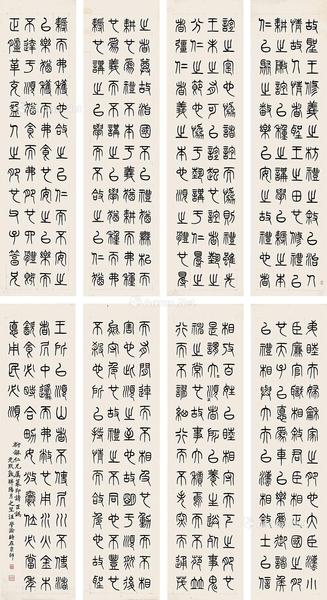 故聖王修義之柄禮之序以治人
情故人情者聖王之田也修禮以
耕之陳義以種之講學以耨之本
仁以聚之播樂以安之故禮也者
義之實也協諸義而協則禮雖先
王未之有可以義起也義者藝之
分仁之節也協於藝講於仁得之
者強仁者義之本也順之體也得
之者尊故治國不以禮猶無耜而
耕也為禮不本於義猶耕而弗種
也為義而不講之以學猶種而弗
耨也講之以學而不合之以仁猶
耨而弗獲也合之以仁而不安之
以樂猶獲而弗食也安之以樂而
不達於順猶食而弗肥也四體既
正膚革充盈人之肥也父子篤兄
弟睦夫婦和家之肥也大臣法小
臣廉官職相序君臣相正國之肥
也天子以德為車以樂為御諸侯
以禮相與大夫以法相序士以信
相考百姓以睦相守天下之肥也
是謂大順大順者所以養生送死
行而不失深而通茂
而有間連而不相及也動而不相
害也此順之至也故明於順然後
能守危也故禮之不同也不豐也
不殺也所以持情而合危也故聖
王所以順山者不使居川不使渚
者居中原而弗敝也用水火金木
飲食必時合男女頒爵位必當年
德用民必順